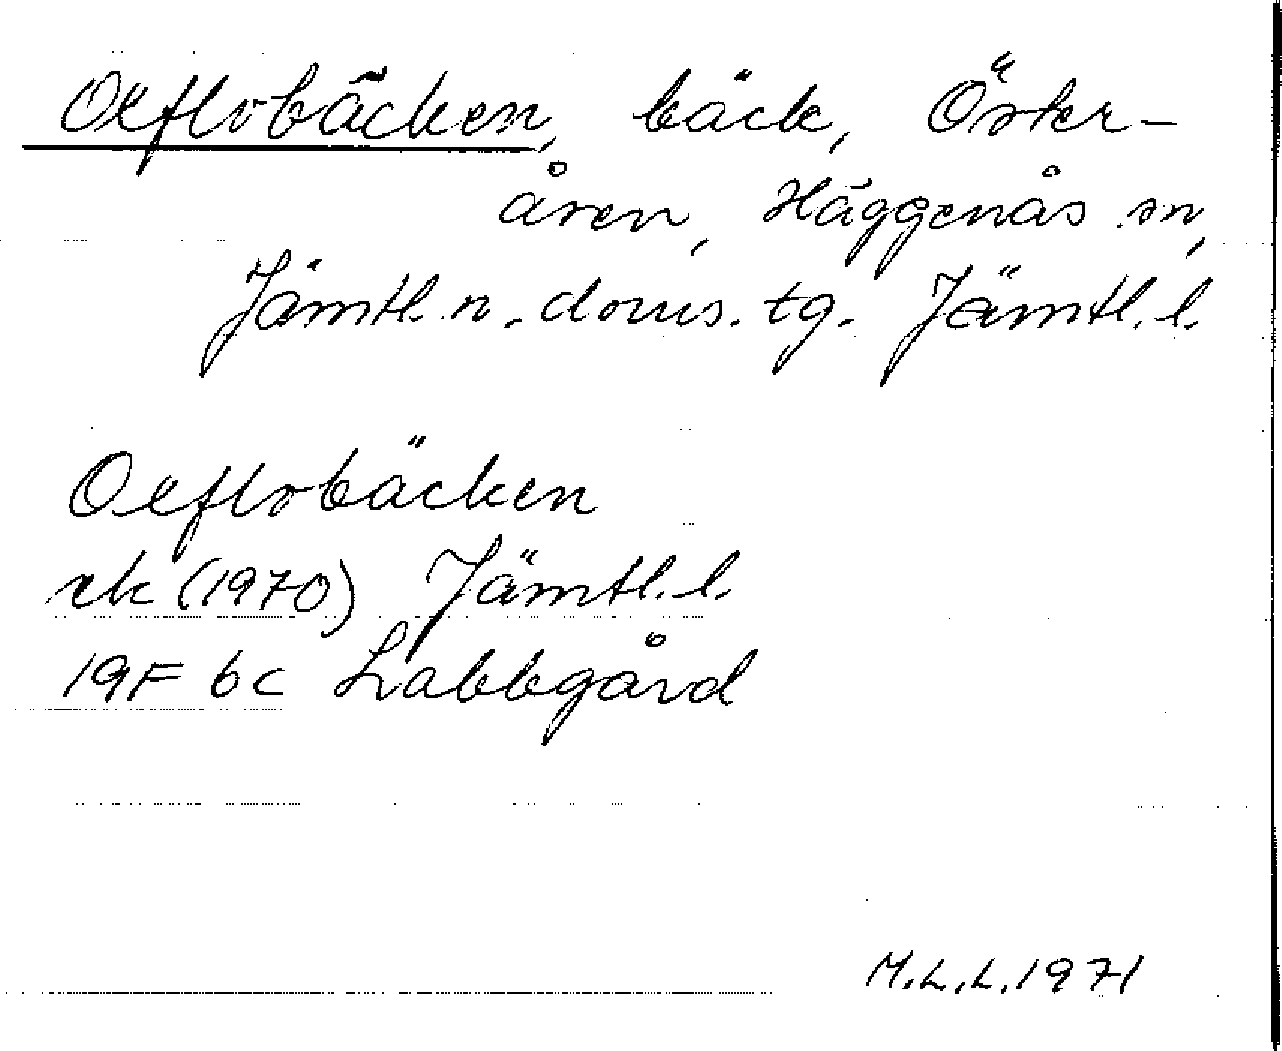 Oeflobäcken, bäck, Öster-
åren, Häggenås sn,
Jämtl. n. doms. tg. Jämtl. l.
Oeflobäcken
ek (1970) Jämtl. l.
19F 6c Labbgård
M.L.L. 1971